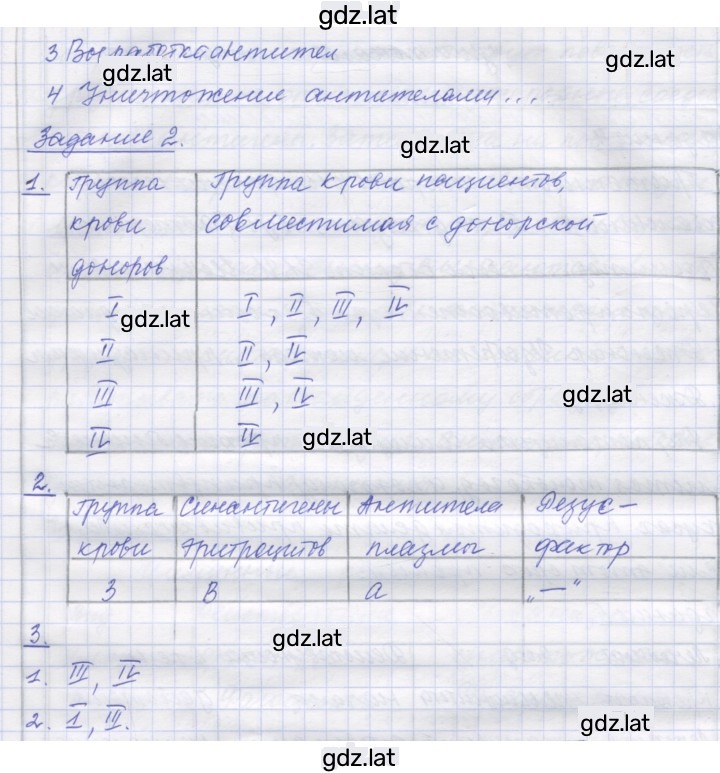 gdz.lat
3 Выработка антител
gdz.lat gdz.lat
4 Уничтожение антителами...
Задание 2.
gdz.lat
1.
Группа крови доноров | Группа крови пациентов, совместимая с донорской
I | I, II, III, IV
gdz.lat
II | II, IV
III | III, IV
gdz.lat
IV | IV
gdz.lat
2.
Группа крови | Синантигены эритроцитов | Антитела плазмы | Резус-фактор
3 | B | a | „—"
3.
gdz.lat
1. III, IV
2. I, III.
gdz.lat
gdz.lat